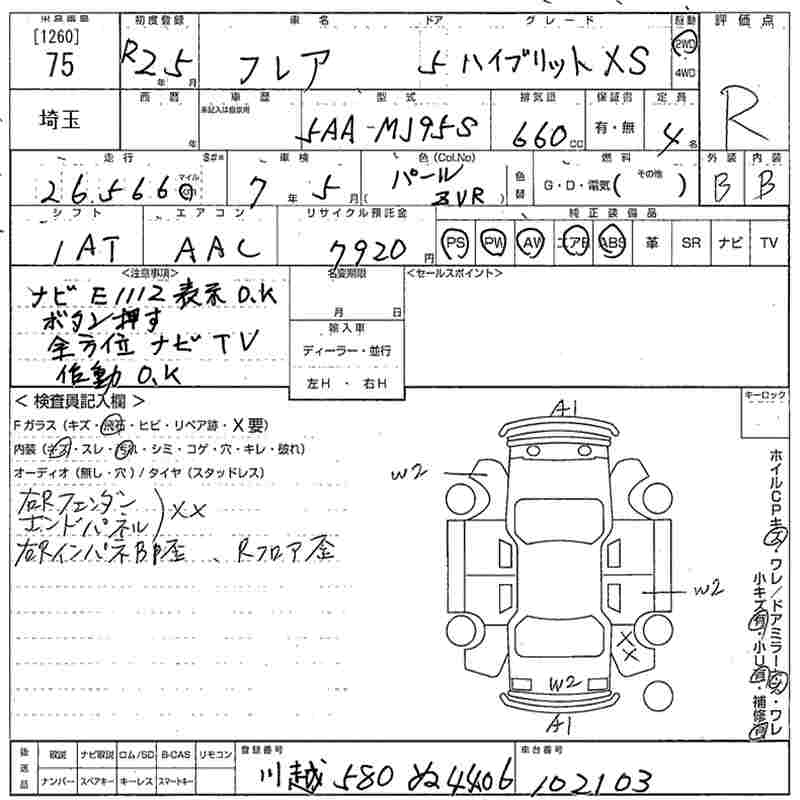 [1260]
75
埼玉
初度登録
R 2 5
年 月
車名
フレア
ドア
5
グレード
ハイブリット XS
駆動
2WD
4WD
評価点
R
西暦
年
車歴
未記入は自家用
型式
5AA-MJ95S
排気量
660 cc
保証書
有・無
定員
4 名
走行
26,566
マイル
km
車検
7 年 5 月
色 (Col.No)
パール
ZVR
色替
燃料
G・D・電気( その他 )
外装
B
内装
B
シフト
1AT
エアコン
AAC
リサイクル預託金
7920 円
純正装備品
PS PW AW エアB ABS 革 SR ナビ TV
<注意事項>
ナビ E1112 表示 O.K
ボタン押す
全方位 ナビ TV
作動 O.K
名変期限
月 日
輸入車
ディーラー・並行
左H ・ 右H
<セールスポイント>
< 検査員記入欄 >
Fガラス (キズ・飛石・ヒビ・リペア跡・X要)
内装 (キズ・スレ・汚れ・シミ・コゲ・穴・キレ・破れ)
オーディオ (無し・穴) / タイヤ (スタッドレス)
右Rフェンダー
エンドパネル ) XX
右RインパネBP歪 、Rフロア歪
キーロック
A1
W2
W2
XX
W2
A1
ホイルCPキズ・ワレ/ドアミラーキズ・ワレ
小キズ有・小U有・補修有
後送品
取説 ナビ取説 ロム/SD B-CAS リモコン
ナンバー スペアキー キーレス スマートキー
登録番号
川越 580 ぬ 4406
車台番号
102103